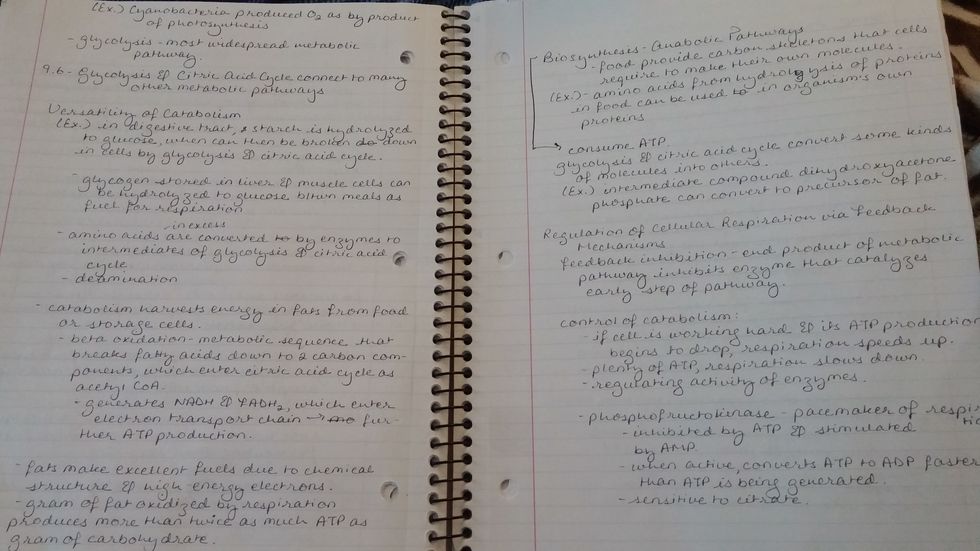 (Ex.) Cyanobacteria produced O2 as by product
of photosynthesis
- glycolysis - most widespread metabolic
pathway.
9.6 - Glycolysis & Citric Acid Cycle connect to many
other metabolic pathways
Versatility of Catabolism
(Ex.) in digestive tract, starch is hydrolyzed
to glucose, when can then be broken down
in cells by glycolysis & citric acid cycle.
- glycogen stored in liver & muscle cells can
be hydrolyzed to glucose btwn meals as
fuel for respiration
in excess
- amino acids are converted to by enzymes to
intermediates of glycolysis & citric acid
cycle.
- deamination
- catabolism harvests energy in fats from food
or storage cells.
- beta oxidation - metabolic sequence that
breaks fatty acids down to 2 carbon com-
ponents, which enter citric acid cycle as
acetyl CoA.
- generates NADH & FADH2, which enter
electron transport chain → fur-
ther ATP production.
- fats make excellent fuels due to chemical
structure & high energy electrons.
- gram of fat oxidized by respiration
produces more than twice as much ATP as
gram of carbohydrate.
Biosynthesis - Anabolic Pathways
- food provide carbon skeletons that cells
require to make their own molecules.
(Ex.) - amino acids from hydrolysis of proteins
in food can be used to in organism's own
proteins
→ consume ATP.
glycolysis & citric acid cycle convert some kinds
of molecules into others.
(Ex.) intermediate compound dihydroxyacetone
phosphate can convert to precursor of fat.
Regulation of Cellular Respiration via Feedback
Mechanisms
feedback inhibition - end product of metabolic
pathway inhibits enzyme that catalyzes
early step of pathway.
control of catabolism:
- if cell is working hard & its ATP production
begins to drop, respiration speeds up.
- plenty of ATP, respiration slows down.
- regulating activity of enzymes.
- phosphofructokinase - pacemaker of respi
- inhibited by ATP & stimulated
by AMP.
- when active, converts ATP to ADP faster
than ATP is being generated.
- sensitive to citrate.